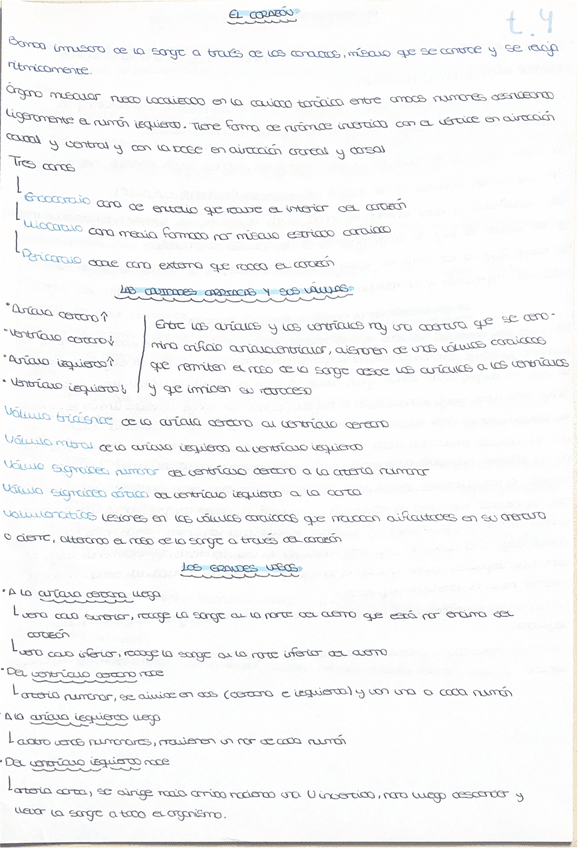 EL CORAZÓN
t.4
Bomba impulsora de la sangre a través de los conductos, músculo que se contrae y se relaja
rítmicamente.
Órgano muscular hueco localizado en la cavidad torácica entre ambos pulmones desplazando
ligeramente el pulmón izquierdo. Tiene forma de pirámide invertida con el vértice en dirección
caudal y ventral y con la base en dirección craneal y dorsal
Tres capas
Endocardio capa de epitelio que recubre el interior del corazón
Miocardio capa media formada por músculo estriado cardiaco
Pericardio doble capa externa que rodea el corazón
LAS CAVIDADES CARDIACAS Y SUS VÁLVULAS
• Aurícula derecha ↑
• Ventrículo derecho ↓
• Aurícula izquierda ↑
• Ventrículo izquierdo ↓
Entre las aurículas y los ventrículos hay una abertura que se deno-
mina orificio auriculoventricular, disponen de unas válvulas cardiacas
que permiten el paso de la sangre desde las aurículas a los ventrículos
y que impiden su retroceso
Válvula tricúspide de la aurícula derecha al ventrículo derecho
Válvula mitral de la aurícula izquierda al ventrículo izquierdo
Válvula sigmoidea pulmonar del ventrículo derecho a la arteria pulmonar
Válvula sigmoidea aórtica del ventrículo izquierdo a la aorta
Valvulopatías lesiones en las válvulas cardiacas que provocan dificultades en su apertura
o cierre, alterando el paso de la sangre a través del corazón
LOS GRANDES VASOS
• A la aurícula derecha llega
vena cava superior, recoge la sangre de la parte del cuerpo que está por encima del
corazón
vena cava inferior, recoge la sangre de la parte inferior del cuerpo
• Del ventrículo derecho nace
arteria pulmonar, se divide en dos (derecha e izquierda) y van una a cada pulmón
• A la aurícula izquierda llega
cuatro venas pulmonares, provienen un par de cada pulmón
• Del ventrículo izquierdo nace
arteria aorta, se dirige hacia arriba haciendo una U invertida, para luego descender y
llevar la sangre a todo el organismo.